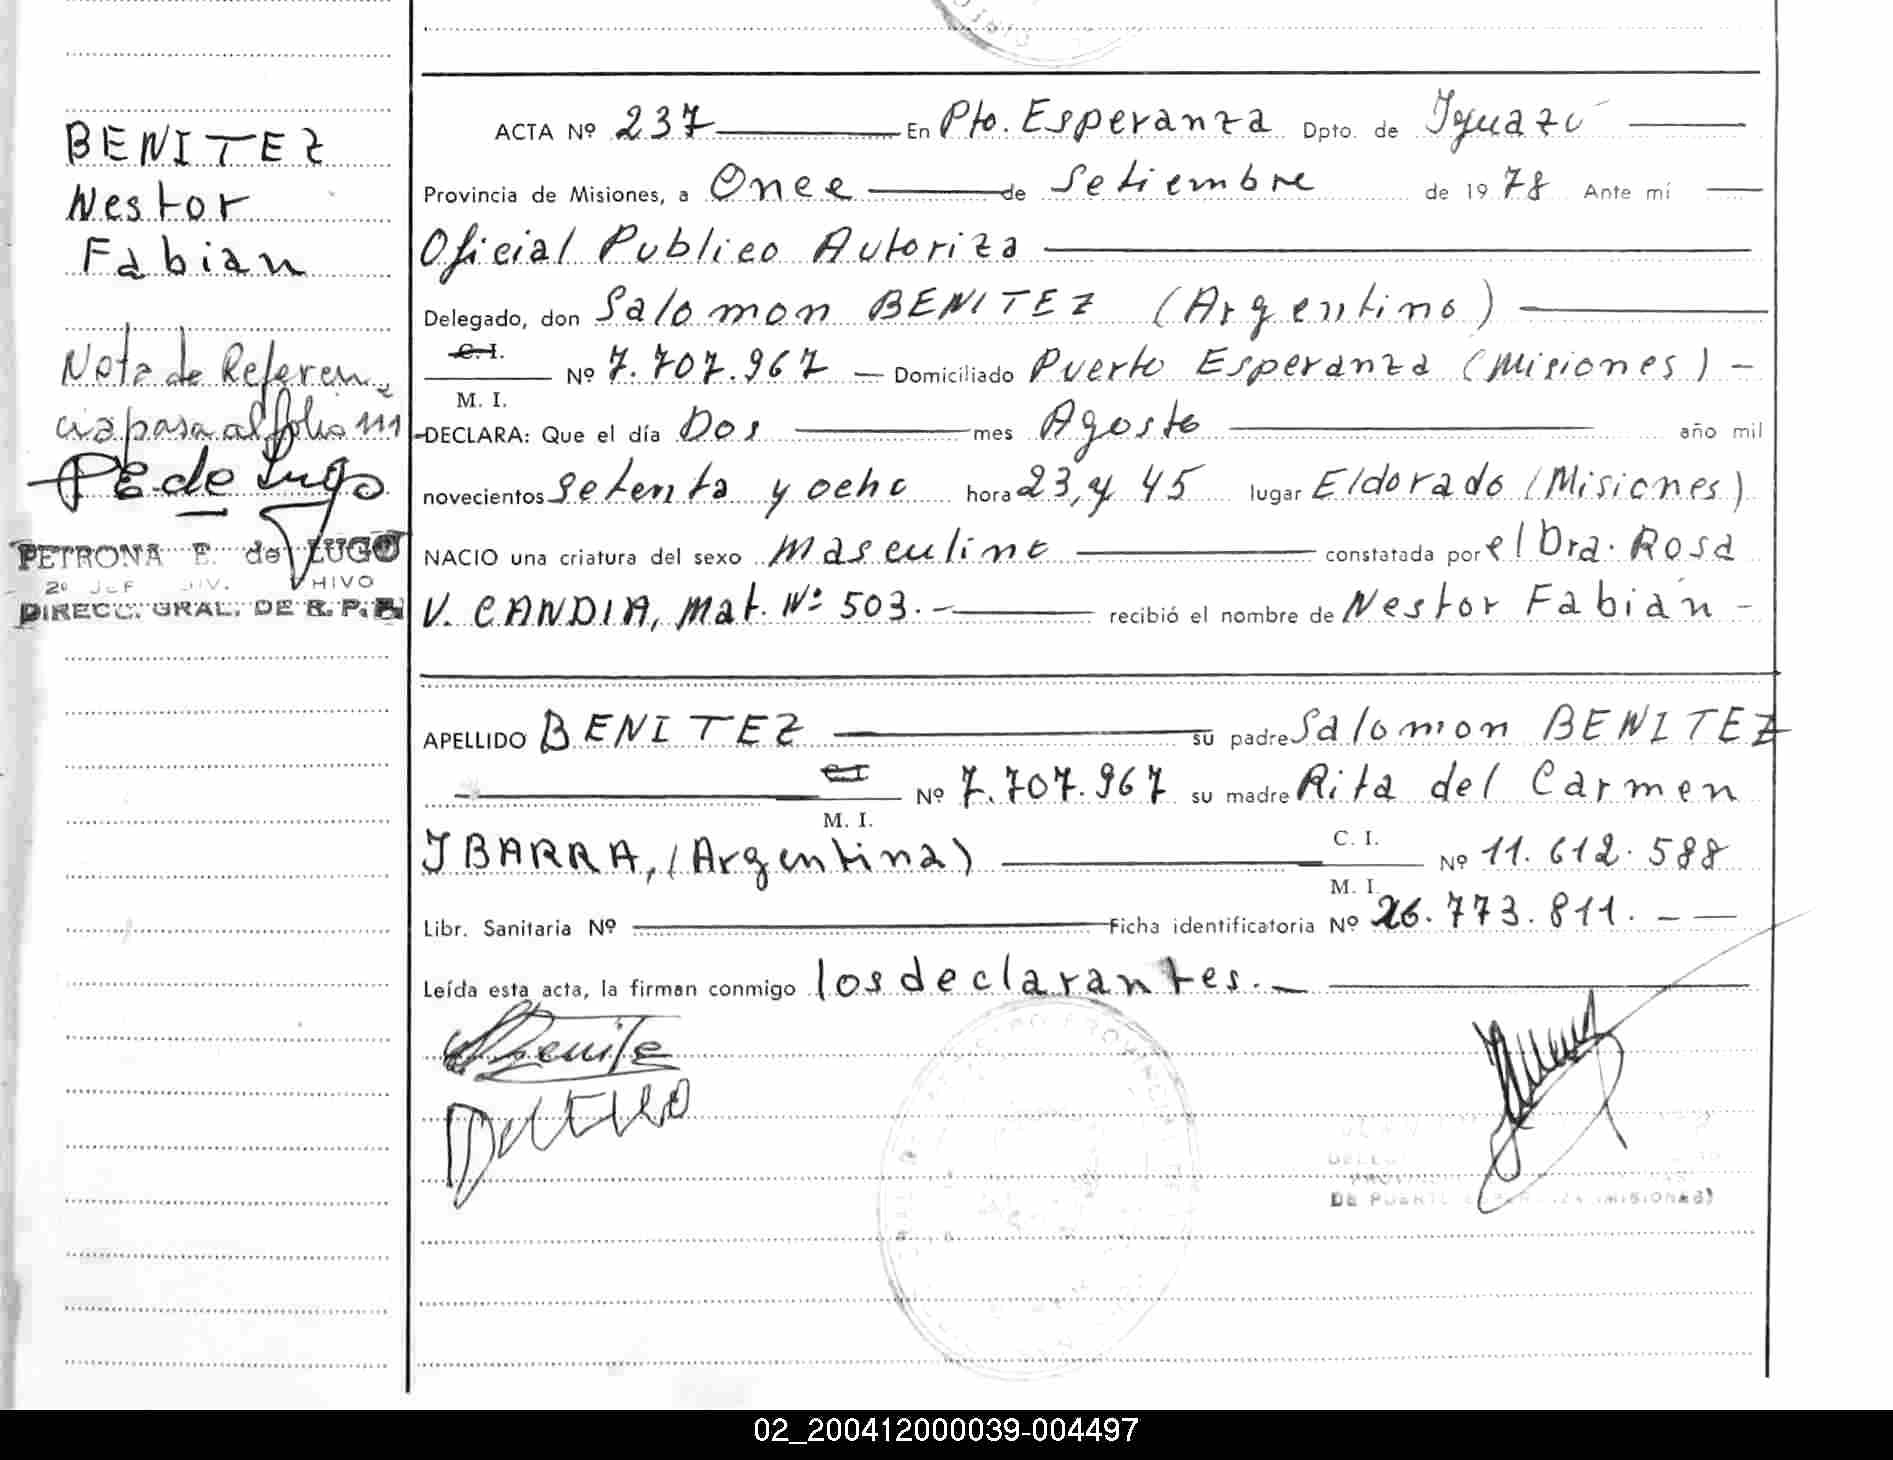 BENITEZ
Nestor
Fabian
Nota de Referen
cia pasa al folio 111
PE de Lugo
PETRONA E. de LUGO
DIRECC. GRAL. DE R. P. P.
ACTA Nº 237 En Pto. Esperanza Dpto. de Iguazú
Provincia de Misiones, a Once de Setiembre de 1978 Ante mí
Oficial Publico Autoriza
Delegado, don Salomon BENITEZ (Argentino)
C. I.
Nº 7.707.967 — Domiciliado Puerto Esperanza (Misiones) -
M. I.
DECLARA: Que el día Dos mes Agosto año mil
novecientos Setenta y ocho hora 23, y 45 lugar Eldorado (Misiones)
NACIO una criatura del sexo Masculino constatada por el Dra. Rosa
V. CANDIA, Mat. Nº 503.- recibió el nombre de Nestor Fabián -
APELLIDO BENITEZ su padre Salomon BENITEZ
C I
Nº 7.707.967 su madre Rita del Carmen
M. I.
IBARRA, (Argentina) C. I. Nº 11.612.588
M. I.
Libr. Sanitaria Nº Ficha identificatoria Nº 26.773.811. - -
Leída esta acta, la firman conmigo los declarantes. -
DE PUERTO ESPERANZA (MISIONES)
02_200412000039-004497